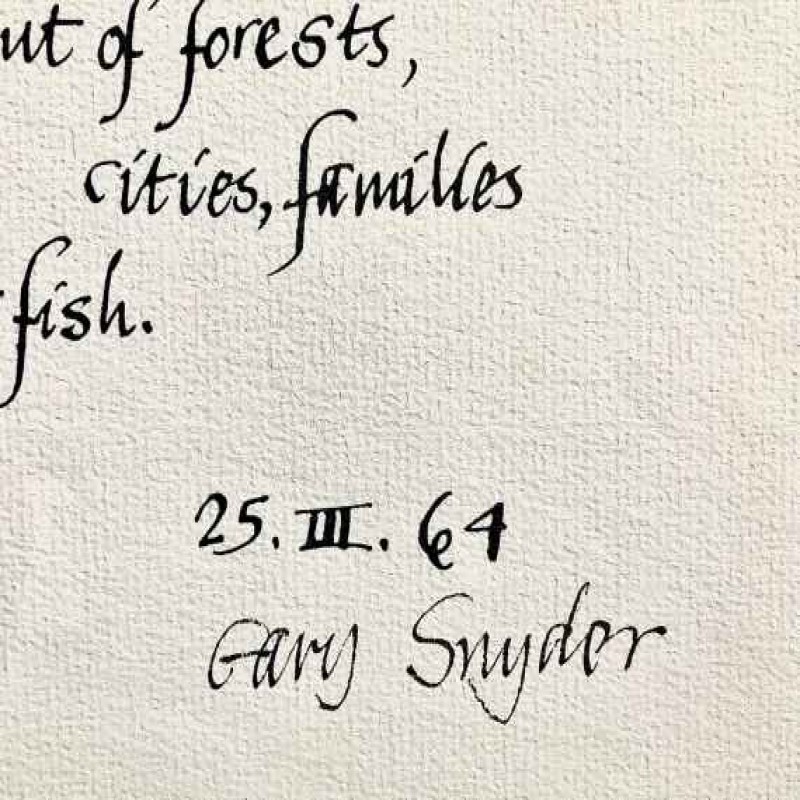 ut of forests,
cities, families
fish.
25. III. 64
Gary Snyder